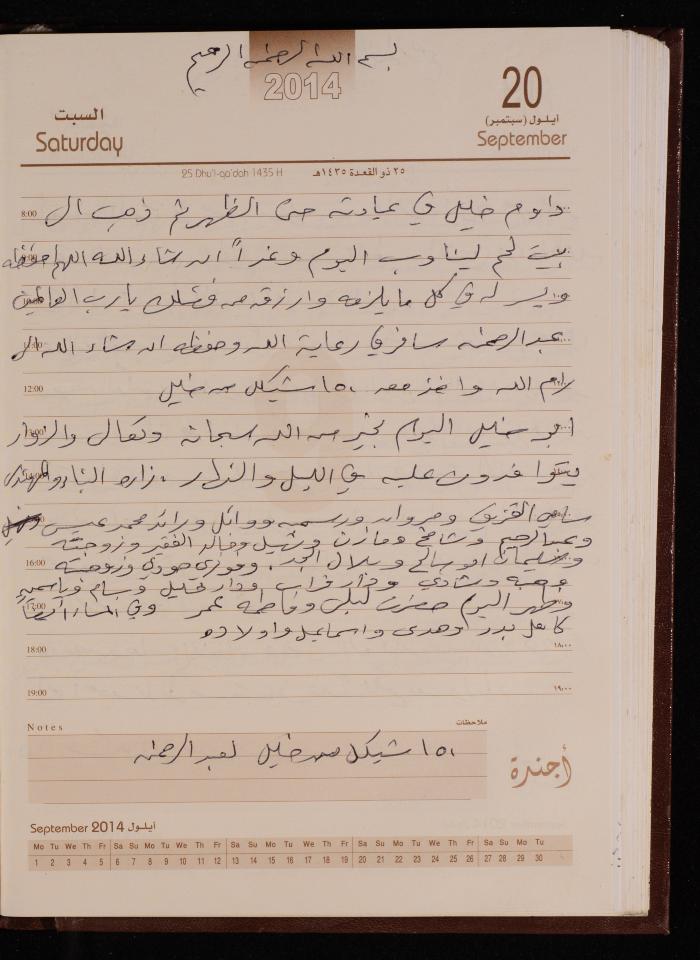 بسم الله الرحمن الرحيم
2014
السبت
Saturday
20
أيلول (سبتمبر)
September
25 Dhu'l-qa'dah 1435 H
٢٥ ذو القعدة ١٤٣٥هـ
8:00 داوم خليل في عيادته حتى الظهر ثم ذهب الى
بيت لحم ليناوب اليوم وغداً ان شاء الله اللهم احفظه
ويسر له في كل ما يلزمه وارزقه من فضلك يا رب العالمين
عبد الرحمن سافر في رعاية الله وحفظه ان شاء الله الى
12:00 رام الله واخذ معه ١٥٠ شيكل من خليل
ابو خليل اليوم بخير من الله سبحانه وتعالى والزوار
يتوافدون عليه في الليل والنهار. زاره البناء والمهندس
سامي القزق ومروان ورسميه ووائل ورائد محمد عيسى
وعبد الرحيم وشافع ومازن ونبيل وخالد الفقير وزوجته
16:00 وسليمان ابو صالح وبلال وفوزي وزوجته
وشادي
17:00 وظهر اليوم حضرت ليلى وفاطمه عمر وفي المساء
كامل بدر وهدى واسماعيل واولاده
18:00 ١٨،٠٠
19:00 ١٩،٠٠
Notes ملاحظات
١٥٠ شيكل من خليل لعبد الرحمن
أجندة
September 2014 أيلول
Mo Tu We Th Fr Sa Su Mo Tu We Th Fr Sa Su Mo Tu We Th Fr Sa Su Mo Tu We Th Fr Sa Su Mo Tu
1 2 3 4 5 6 7 8 9 10 11 12 13 14 15 16 17 18 19 20 21 22 23 24 25 26 27 28 29 30